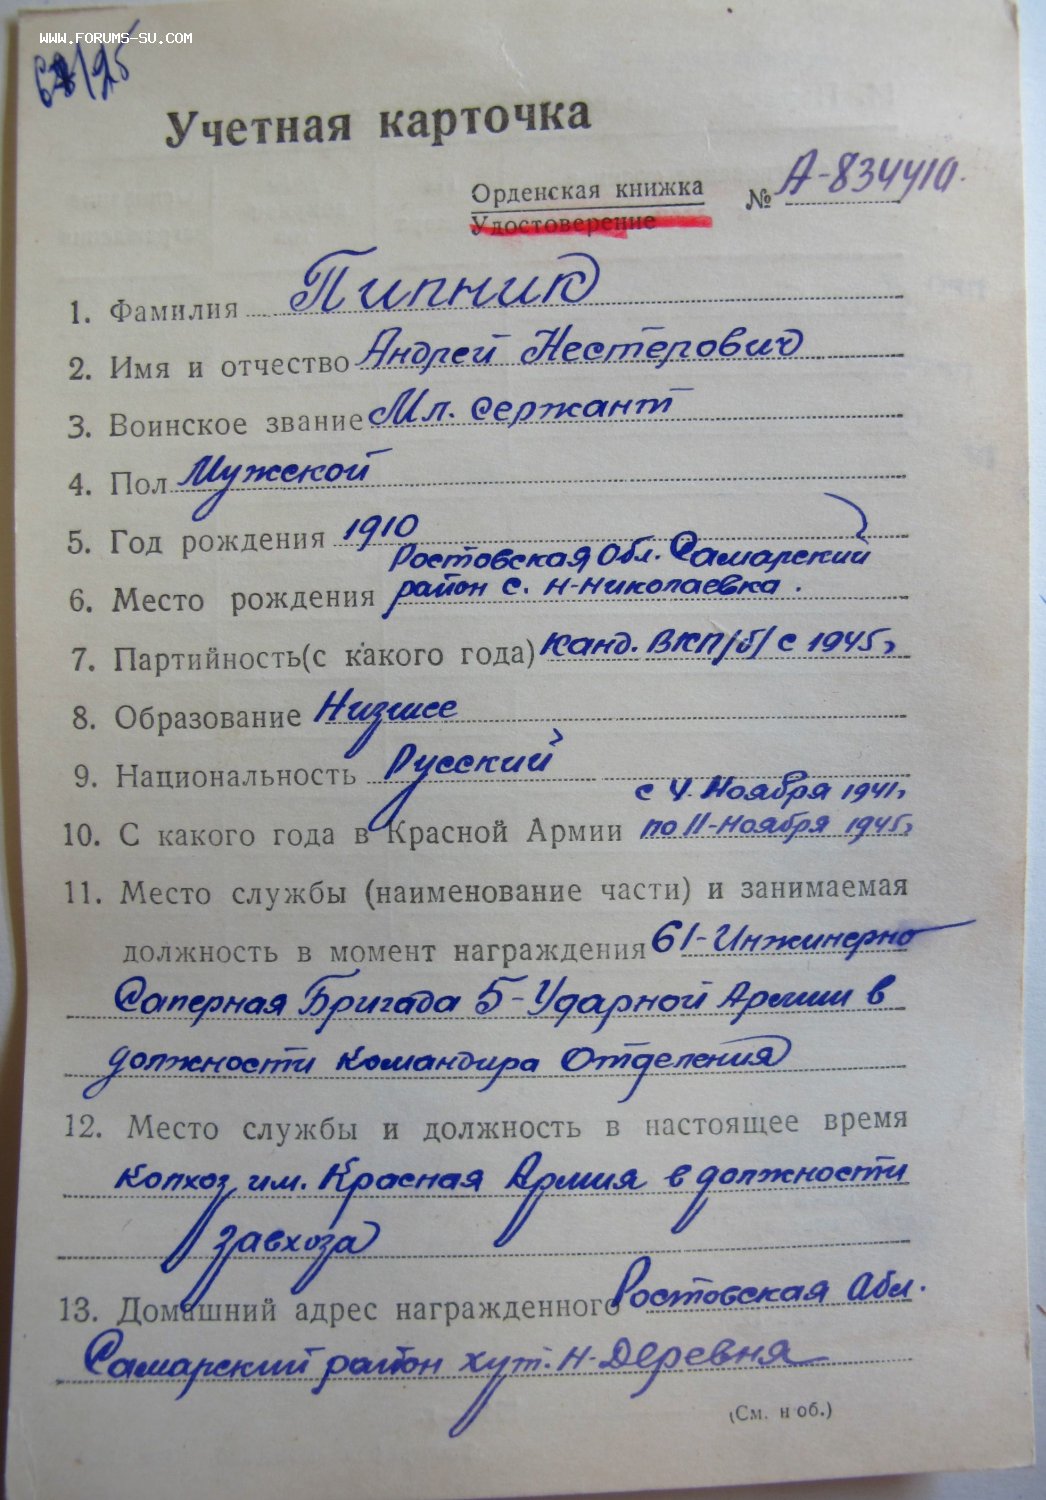 WWW.FORUMS-SU.COM
Учетная карточка
Орденская книжка № А-834410
Удостоверение
1. Фамилия Пипник
2. Имя и отчество Андрей Нестерович
3. Воинское звание Мл. Сержант
4. Пол Мужской
5. Год рождения 1910
Ростовская Обл. Самарский
6. Место рождения район с. Н-Николаевка.
7. Партийность(с какого года) Канд. ВКП/б/ с 1945г
8. Образование Низшее
9. Национальность Русский
с 4. Ноября 1941г
10. С какого года в Красной Армии по 11-Ноября 1945г
11. Место службы (наименование части) и занимаемая
должность в момент награждения 61-Инжинерно
Саперная Бригада 5-Ударной Армии в
должности Командира Отделения
12. Место службы и должность в настоящее время
Колхоз им. Красная Армия в должности
завхоза
13. Домашний адрес награжденного Ростовская Обл.
Самарский район хут. Н-Деревня
(См. н об.)